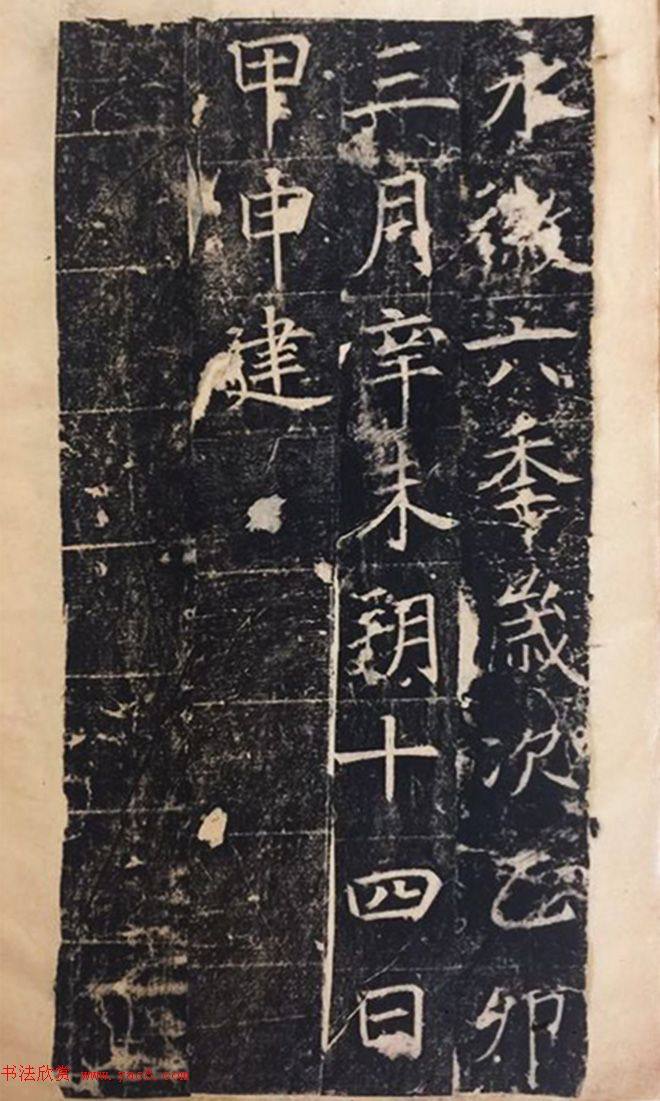 永徽六秊歲次乙卯
三月辛未朔十四日
甲申建
书法欣赏 www.yac8.com